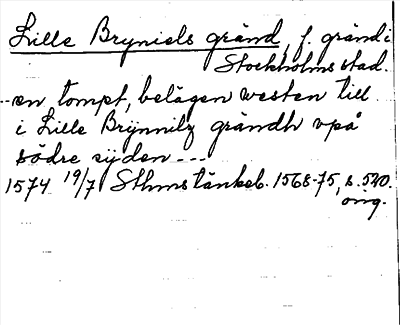 Lille Bryniels gränd, f. gränd i
Stockholms stad.
--en tompt, belägen westen till
i Lille Brÿnnilz grändh vpå
södre sÿden ---
1574 19/7 Sthms tänkeb. 1568-75, s. 540.
orig.